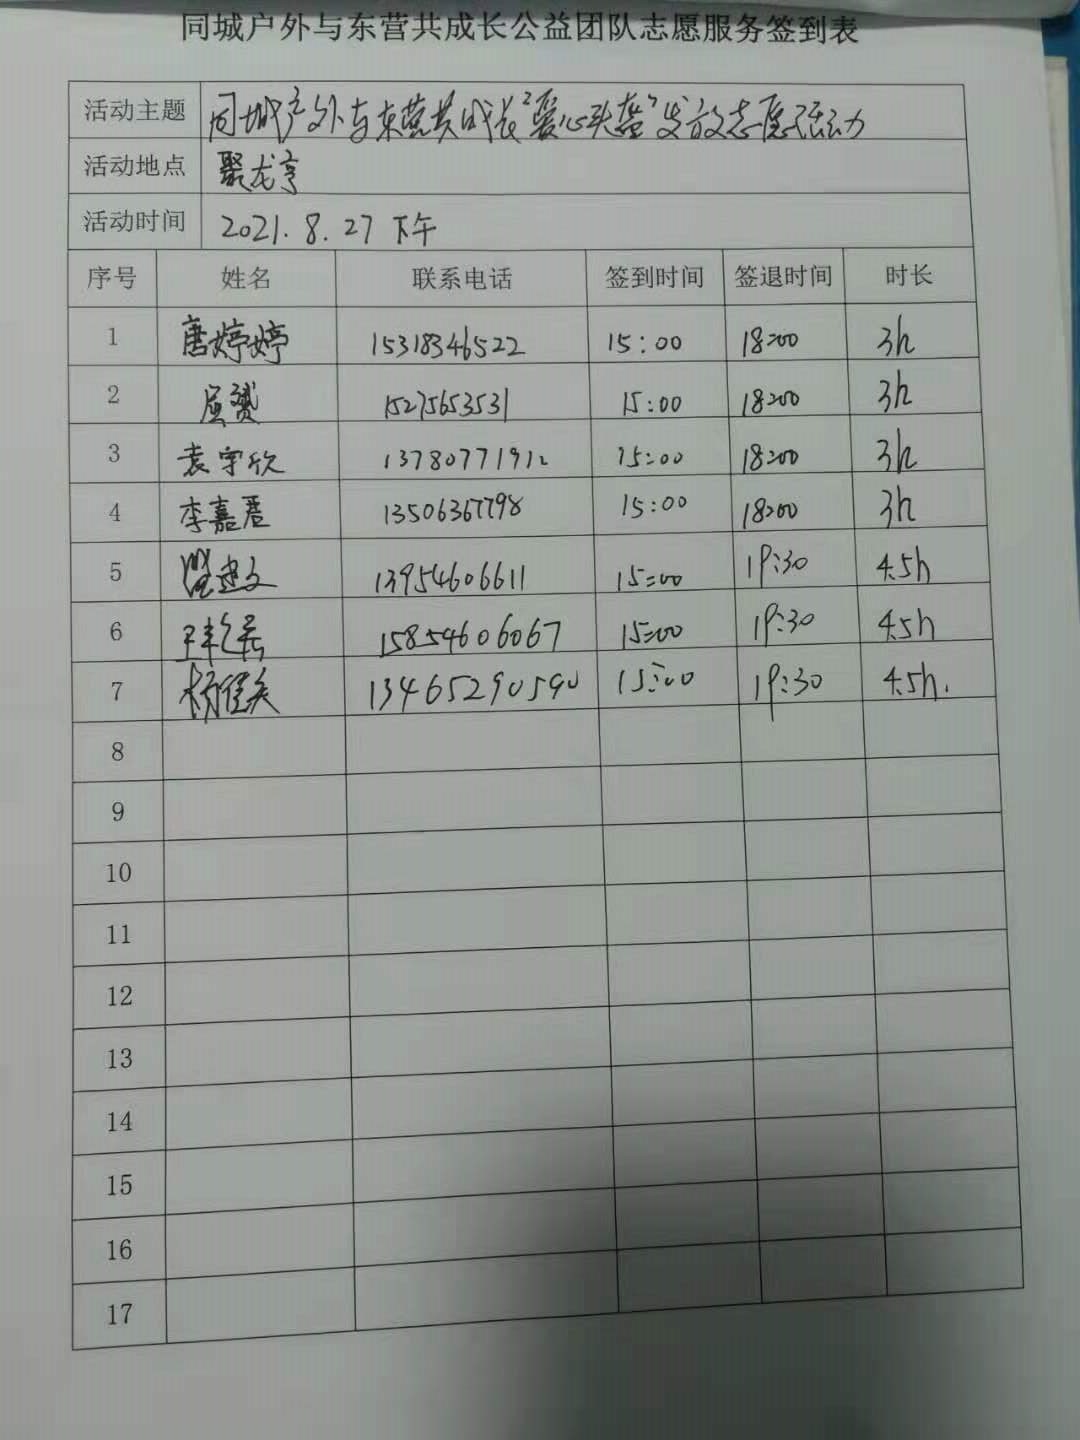 同城户外与东营共成长公益团队志愿服务签到表
活动主题 同城户外与东营共成长"爱心头盔"发放志愿活动
活动地点 聚龙亨
活动时间 2021.8.27 下午
序号 姓名 联系电话 签到时间 签退时间 时长
1 唐婷婷 15318346522 15:00 18:00 3h
2 屈赟 15275653531 15:00 18:00 3h
3 袁宇欣 13780771912 15:00 18:00 3h
4 李嘉君 13506367798 15:00 18:00 3h
5 13954606611 15:00 19:30 4.5h
6 15854606067 15:00 19:30 4.5h
7 杨佳美 13465290590 15:00 19:30 4.5h.
8
9
10
11
12
13
14
15
16
17